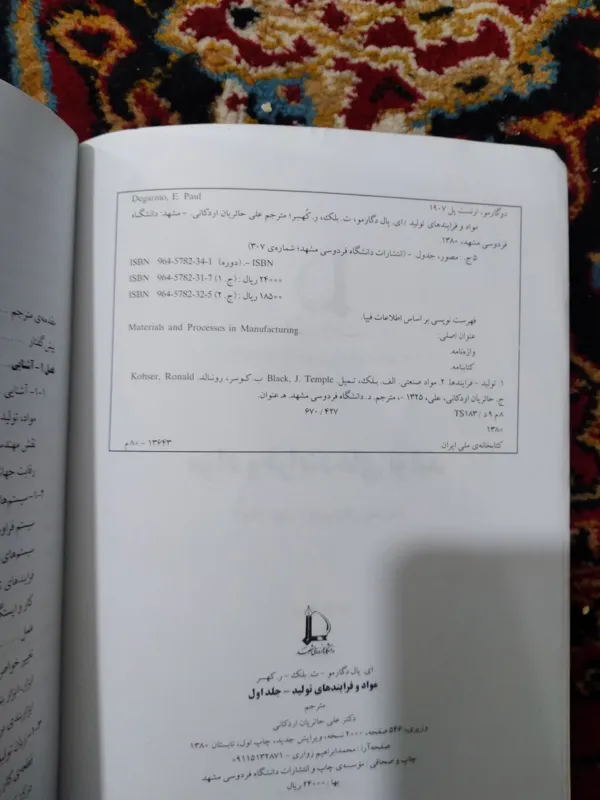 Degarmo, E. Paul
دوگارمو، ارنست پل ۱۹۰۷
مواد و فرایندهای تولید /ای. پال دگارمو، ت. بلک، ر. کُهسر؛ مترجم علی حائریان اردکانی. - مشهد: دانشگاه
فردوسی مشهد، ۱۳۸۰.
۵ ج. مصور، جدول. - (انتشارات دانشگاه فردوسی مشهد؛ شماره‌ی ۳۰۷)
ISBN 964-5782-34-1 (دوره) .- ISBN
ISBN 964-5782-31-7 (ج. ۱) ۲۴۰۰۰ ریال :
ISBN 964-5782-32-5 (ج. ۲) ۱۸۵۰۰ ریال :
فهرست نویسی بر اساس اطلاعات فیپا.
عنوان اصلی: Materials and Processes in Manufacturing.
واژه‌نامه.
کتابنامه.
۱. تولید - فرایندها. ۲. مواد صنعتی. الف. بلک، تمپل. Black, J. Temple ب. کوسر، رونالد. Kohser, Ronald
ج. حائریان اردکانی، علی، ۱۳۲۵ -، مترجم. د. دانشگاه فردوسی مشهد. ه‍. عنوان.
۸ م ۹ د / TS۱۸۳ ۶۷۰ / ۴۲۷
۱۳۸۰
کتابخانه‌ی ملی ایران ۱۳۶۴۳ - ۸۰ م
ای. پال دگارمو - ت. بلک - ر. کهسر
مواد و فرایندهای تولید - جلد اول
مترجم
دکتر علی حائریان اردکانی
وزیری، ۵۴۶ صفحه، ۲۰۰۰ نسخه، ویرایش جدید، چاپ اول، تابستان ۱۳۸۰
صفحه‌آرا: محمدابراهیم زواری / ۰۹۱۱۵۱۳۲۸۷۱
چاپ و صحافی: مؤسسه‌ی چاپ و انتشارات دانشگاه فردوسی مشهد
بها: ۲۴۰۰۰ ریال
مقدمه‌ی مترجم
پیش گفتار
۱-۱- آشنایی
مواد، تولید
نقش مهندس
رقابت جهانی
۱-۲- سیستم‌ها
سیستم فراور
سیستم‌های
فرایندهای
کار و ایستگا
عمل
تغییر خواص